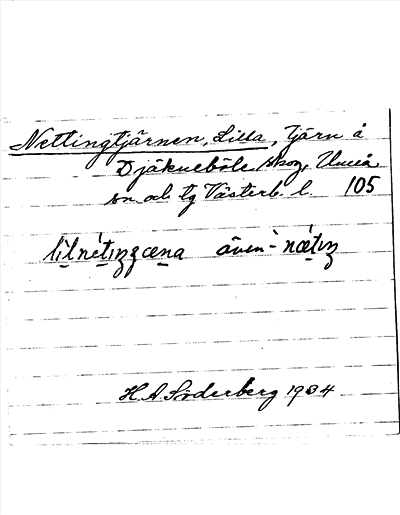 Nettingtjärnen, Lilla, Tjärn å
Djäkneböle skog, Umeå
sn. och tg Västerb. l. 105
lilnétiŋʒœna även -nœ́tiŋ
H. A. Söderberg 1934